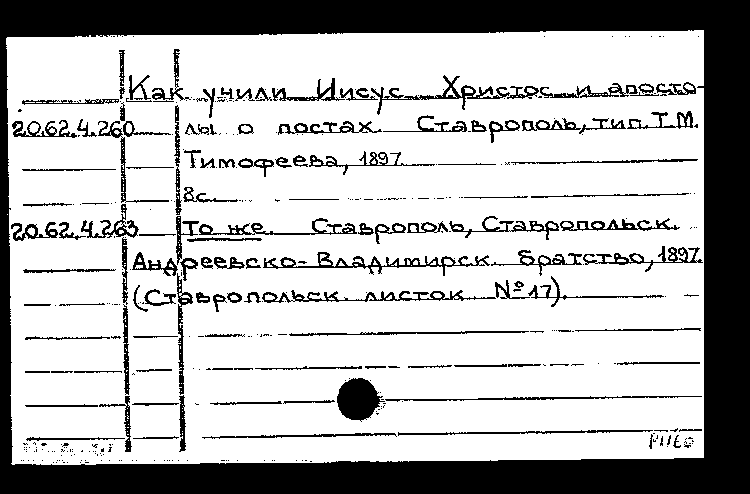 Как учили Иисус Христос и апосто-
20.62.4.260 лы о постах. Ставрополь, тип. Т.М.
Тимофеева, 1897.
8с.
20.62.4.263 То же. Ставрополь, Ставропольск.
Андреевско-Владимирск. братство, 1897.
(Ставропольск. листок №17).